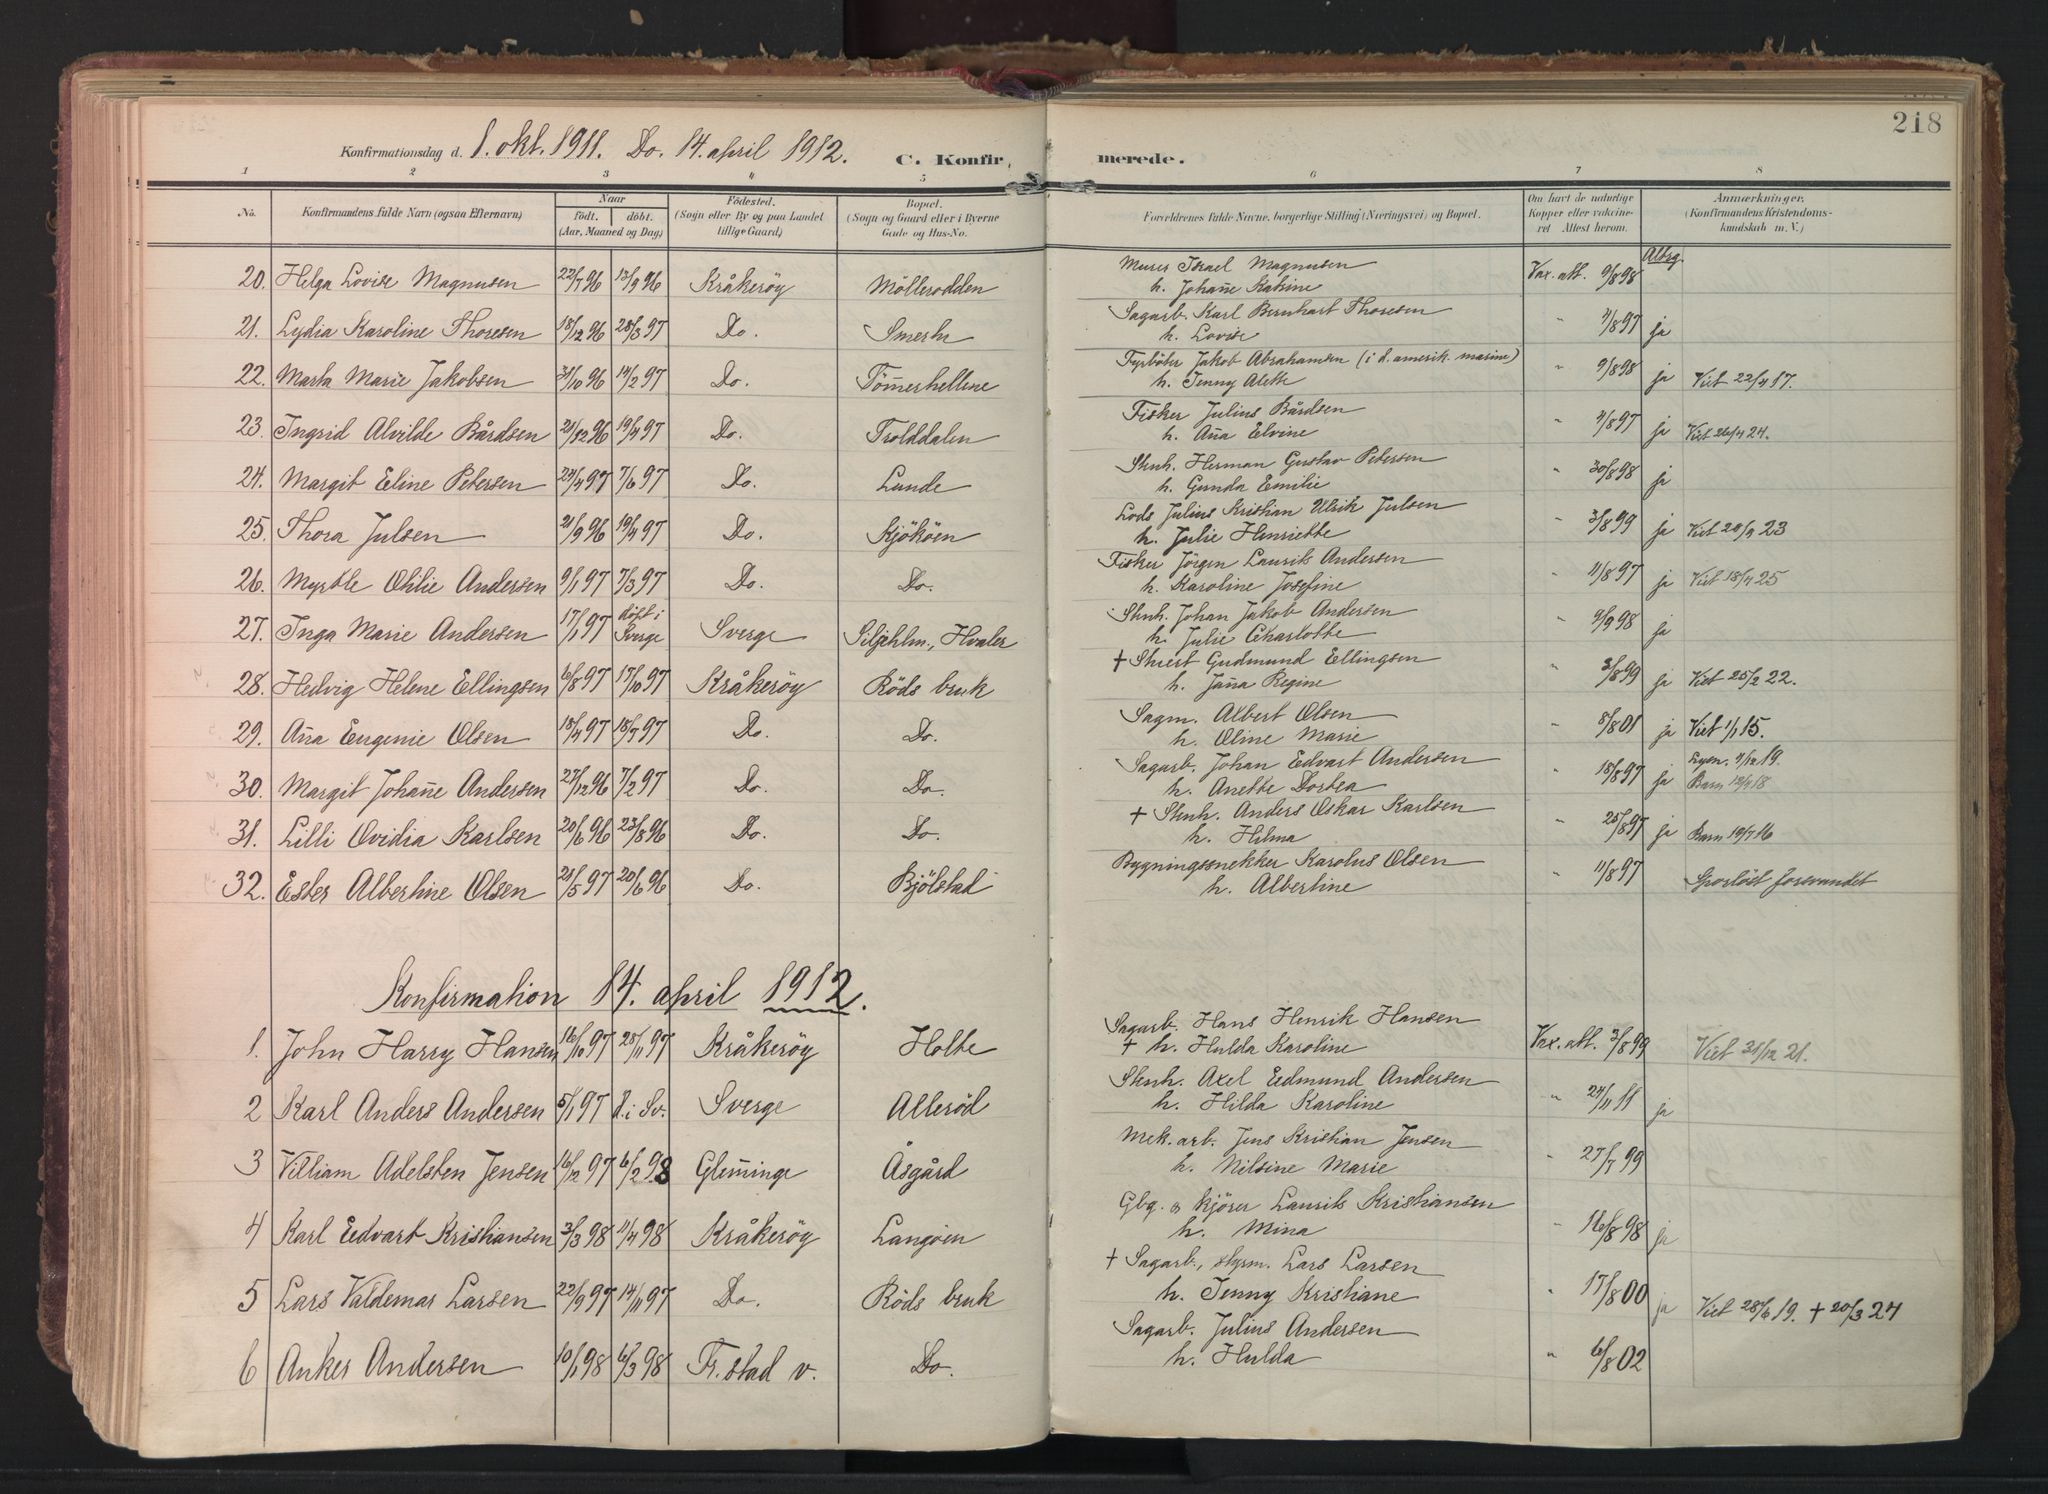 218
Konfirmationsdag d. 1. okt. 1911. Do. 14. april 1912. C. Konfirmerede.
1 2 3 4 5 6 7 8
No. Konfirmandens fulde Navn (ogsaa Efternavn) Naar födt. döbt. (Aar, Maaned og Dag) Födested. (Sogn eller By og paa Landet tillige Gaard) Bopæl. (Sogn og Gaard eller i Byerne Gade og Hus-No. Forældrenes fulde Navne, borgerlige Stilling (Næringsvei) og Bopæl. Om havt de naturlige Kopper eller vakcineret Attest herom. Anmærkninger. (Konfirmandens Kristendomskundskab m. V.)
20. Helga Lovise Magnusen 22/7 96 13/9 96 Kråkeröy Möllerodden Murer Israel Magnusen Vax. att. 9/8 98 Altrg.
h. Johañe Katrine
21. Lydia Karoline Thoresen 18/12 96 28/3 97 Do. Smerh Sagarb. Karl Bernhart Thoresen " 4/8 97 ja
h. Lovise
22. Marta Marie Jakobsen 31/10 96 14/2 97 Do. Töm̃erhellene Fyrböter Jakob Abrahamsen (i d. amerik. marine) " 9/8 98 ja Viet 22/4 17.
h. Jenny Alette
23. Ingrid Alvilde Bårdsen 21/12 96 19/4 97 Do. Trolddalen Fisker Julius Bårdsen " 4/8 97 ja Viet 26/4 24.
h. Añа Elvine
24. Margit Eline Petersen 24/4 97 7/6 97 Do. Lunde Stnh. Herman Gustav Petersen " 30/8 98 ja
h. Gunda Emilie
25. Thora Julsen 21/9 96 19/4 97 Do. Kjököen Lods Julius Kristian Ulrik Julsen " 3/8 99 ja Viet 29/9 23
h. Julie Henriette
26. Myrtle Otilie Andersen 9/1 97 7/3 97 Do. Do. Fisker Jörgen Laurits Andersen " 11/8 97 ja Viet 18/4 25
h. Karoline Josefine
27. Inga Marie Andersen 17/1 97 döpt i Sverge Sverge Siljehlm., Hvaler Stnh. Johan Jakob Andersen " 9/9 98 ja
h. Julie Charlotte
28. Hedvig Helene Ellingsen 6/8 97 17/10 97 Kråkeröy Röds bruk + Skrest Gudmund Ellingsen " 3/8 99 ja Viet 25/2 22.
h. Jaña Regine
29. Aña Eugenie Olsen 18/4 97 18/7 97 Do. Do. Sagm. Albert Olsen " 8/8 01 ja Viet 1/1 15.
h. Oline Marie
30. Margit Johañe Andersen 27/12 96 7/2 97 Do. Do. Sagarb. Johan Edvart Andersen " 18/8 97 ja Lysn. 7/12 19.
h. Anette Dortea Barn 12/9 18
31. Lilli Ovidia Karlsen 20/6 96 23/8 96 Do. Do. + Stnh. Anders Oskar Karlsen " 25/8 97 ja Barn 19/7 16
h. Hilma
32. Ester Albertine Olsen 21/5 97 20/6 96 Do. Bjölstad Bygningssnekker Karolus Olsen " 11/8 97 Sporlöst forsvundet
h. Albertine
Konfirmation 14. april 1912.
1. John Harry Hansen 16/10 97 28/11 97 Kråkeröy Holte Sagarb. Hans Henrik Hansen Vax. att. 3/8 99 Viet 31/12 21.
+ h. Hulda Karoline
2 Karl Anders Andersen 5/1 97 d. i Sv. Sverge Alleröd Stnh. Axel Edmund Andersen " 24/11 11 ja
h. Hilda Karoline
3 Villiam Adelsten Jensen 16/12 97 6/2 98 Glem̃inge Åsgård Mek. arb. Jens Kristian Jensen " 27/7 99
h. Nilsine Marie
4 Karl Edvart Kristiansen 3/3 98 11/4 98 Kråkeröy Langöen Gbg. & kjörer Laurits Kristiansen " 16/8 98 ja
h. Mina
5 Lars Valdemar Larsen 22/9 97 14/11 97 Do. Röds bruk + Sagarb., styrm. Lars Larsen " 17/8 00 ja Viet 28/6 19. + 20/3 24
h. Jenny Kristiane
6 Anker Andersen 10/1 98 6/3 98 Fr.stad v. Do. Sagarb. Julius Andersen " 6/8 02
h. Hulda